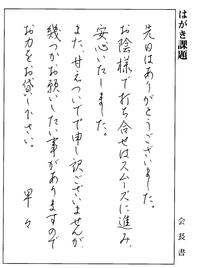 はがき課題
先日はありがとうございました。
お陰様で打ち合せはスムーズに進み、
安心いたしました。
また、甘えついでで申し訳ございませんが
幾つかお願いしたい事がありますので
お力をお貸し下さい。
早々
会長書